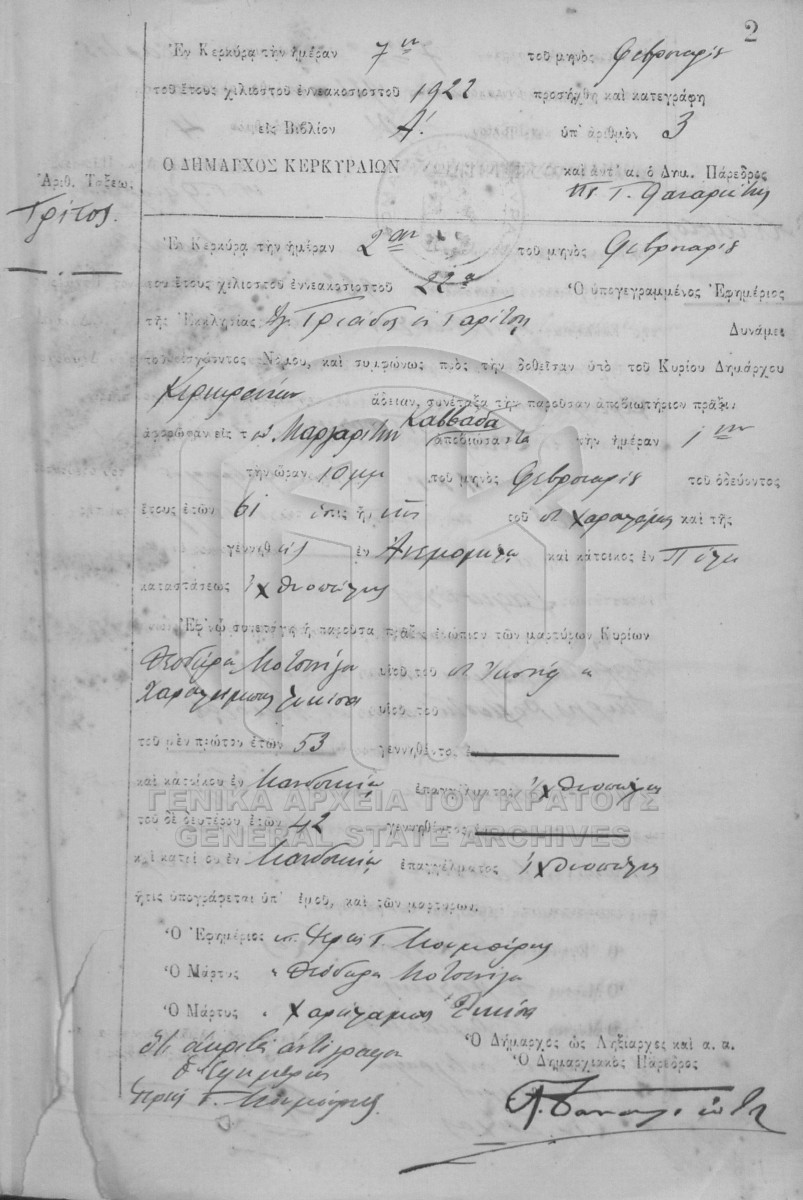 2
Ἐν Κερκύρᾳ τὴν ἡμέραν 7ην τοῦ μηνὸς Φεβρουαρίου
τοῦ ἔτους χιλιοστοῦ ἐννεακοσιοστοῦ 1922 προσήχθη καὶ κατεγράφη
εἰς Βιβλίον Α΄. ὑπ' ἀριθμὸν 3
Ο ΔΗΜΑΡΧΟΣ ΚΕΡΚΥΡΑΙΩΝ καὶ ἀντ' α. ὁ Δημ. Πάρεδρος
Ἀριθ. Τάξεως
Τρίτος.
Ἐν Κερκύρᾳ τὴν ἡμέραν 2αν τοῦ μηνὸς Φεβρουαρίου
τοῦ ἔτους χιλιοστοῦ ἐννεακοσιοστοῦ 22α Ὁ ὑπογεγραμμένος Ἐφημέριος
τῆς Ἐκκλησίας Ἁγ. Τριάδος Γαρίτσης Δυνάμει
τοῦ ἰσχύοντος Νόμου, καὶ συμφώνως πρὸς τὴν δοθεῖσαν ὑπὸ τοῦ Κυρίου Δημάρχου
Κερκυραίων ἄδειαν, συνέταξα τὴν παροῦσαν ἀποβιωτήριον πρᾶξιν
ἀφορῶσαν εἰς τὸν Μαργαρίτην Καββαδᾶ ἀποβιώσαντα τὴν ἡμέραν 1ην
τὴν ὥραν 10 μμ τοῦ μηνὸς Φεβρουαρίου τοῦ ὁδεύοντος
ἔτους ἐτῶν 61 ὅστις ἦν υἱὸς τοῦ Χαραλάμπους καὶ τῆς
γεννηθεὶς ἐν Ἀνεμομύλῳ καὶ κάτοικος ἐν Πόλει
καταστάσεως ἰχθυοπώλης
Ἐφ' ᾧ συνετάγη ἡ παροῦσα πρᾶξις ἐνώπιον τῶν μαρτύρων Κυρίων
υἱοῦ τοῦ
Χαραλάμπους υἱοῦ τοῦ
τοῦ μὲν πρώτου ἐτῶν 53 γεννηθέντος ἐν
καὶ κατοίκου ἐν Μανδουκίῳ ἐπαγγέλματος ἰχθυοπώλης
ΓΕΝΙΚΑ ΑΡΧΕΙΑ ΤΟΥ ΚΡΑΤΟΥΣ
τοῦ δὲ δευτέρου ἐτῶν 42 γεννηθέντος
GENERAL STATE ARCHIVES
καὶ κατοίκου ἐν Μανδουκίῳ ἐπαγγέλματος ἰχθυοπώλης
ἥτις ὑπογράφεται ὑπ' ἐμοῦ, καὶ τῶν μαρτύρων.
Ὁ Ἐφημέριος
Ὁ Μάρτυς
Ὁ Μάρτυς Χαράλαμπος
Ὁ Δήμαρχος ὡς Ληξίαρχος καὶ α. α.
Ὁ Δημαρχιακὸς Πάρεδρος
Δι' ἀκριβὲς ἀντίγραφον
Ὁ Ἐφημέριος